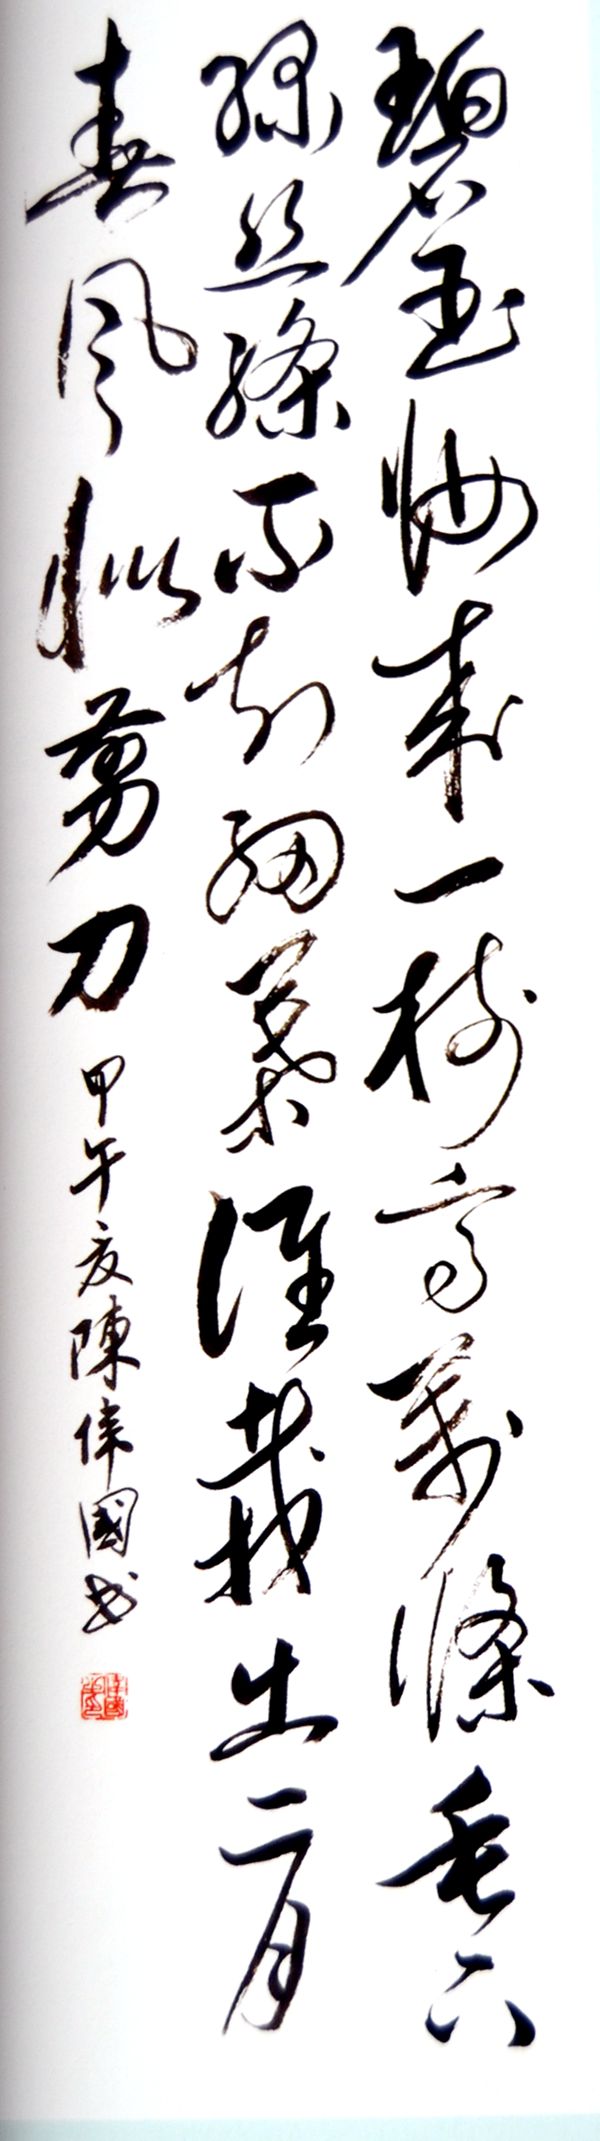 碧玉妝成一樹高萬條垂下
綠絲絛不知細葉誰裁出二月
春風似剪刀
甲午夏陳偉國書